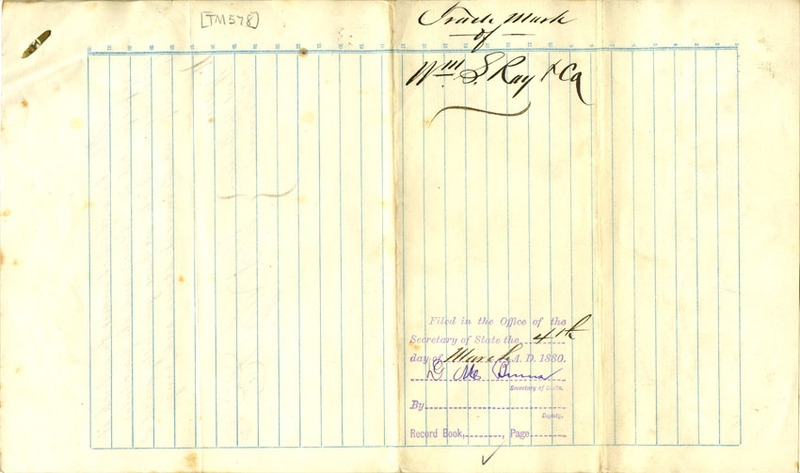 [TM578]
Trade Mark
of
Wm S. Ray & Co
Filed in the Office of the
Secretary of State the 4th
day of March A. D. 1880.
D M Burns
Secretary of State.
By
Deputy.
Record Book, , Page